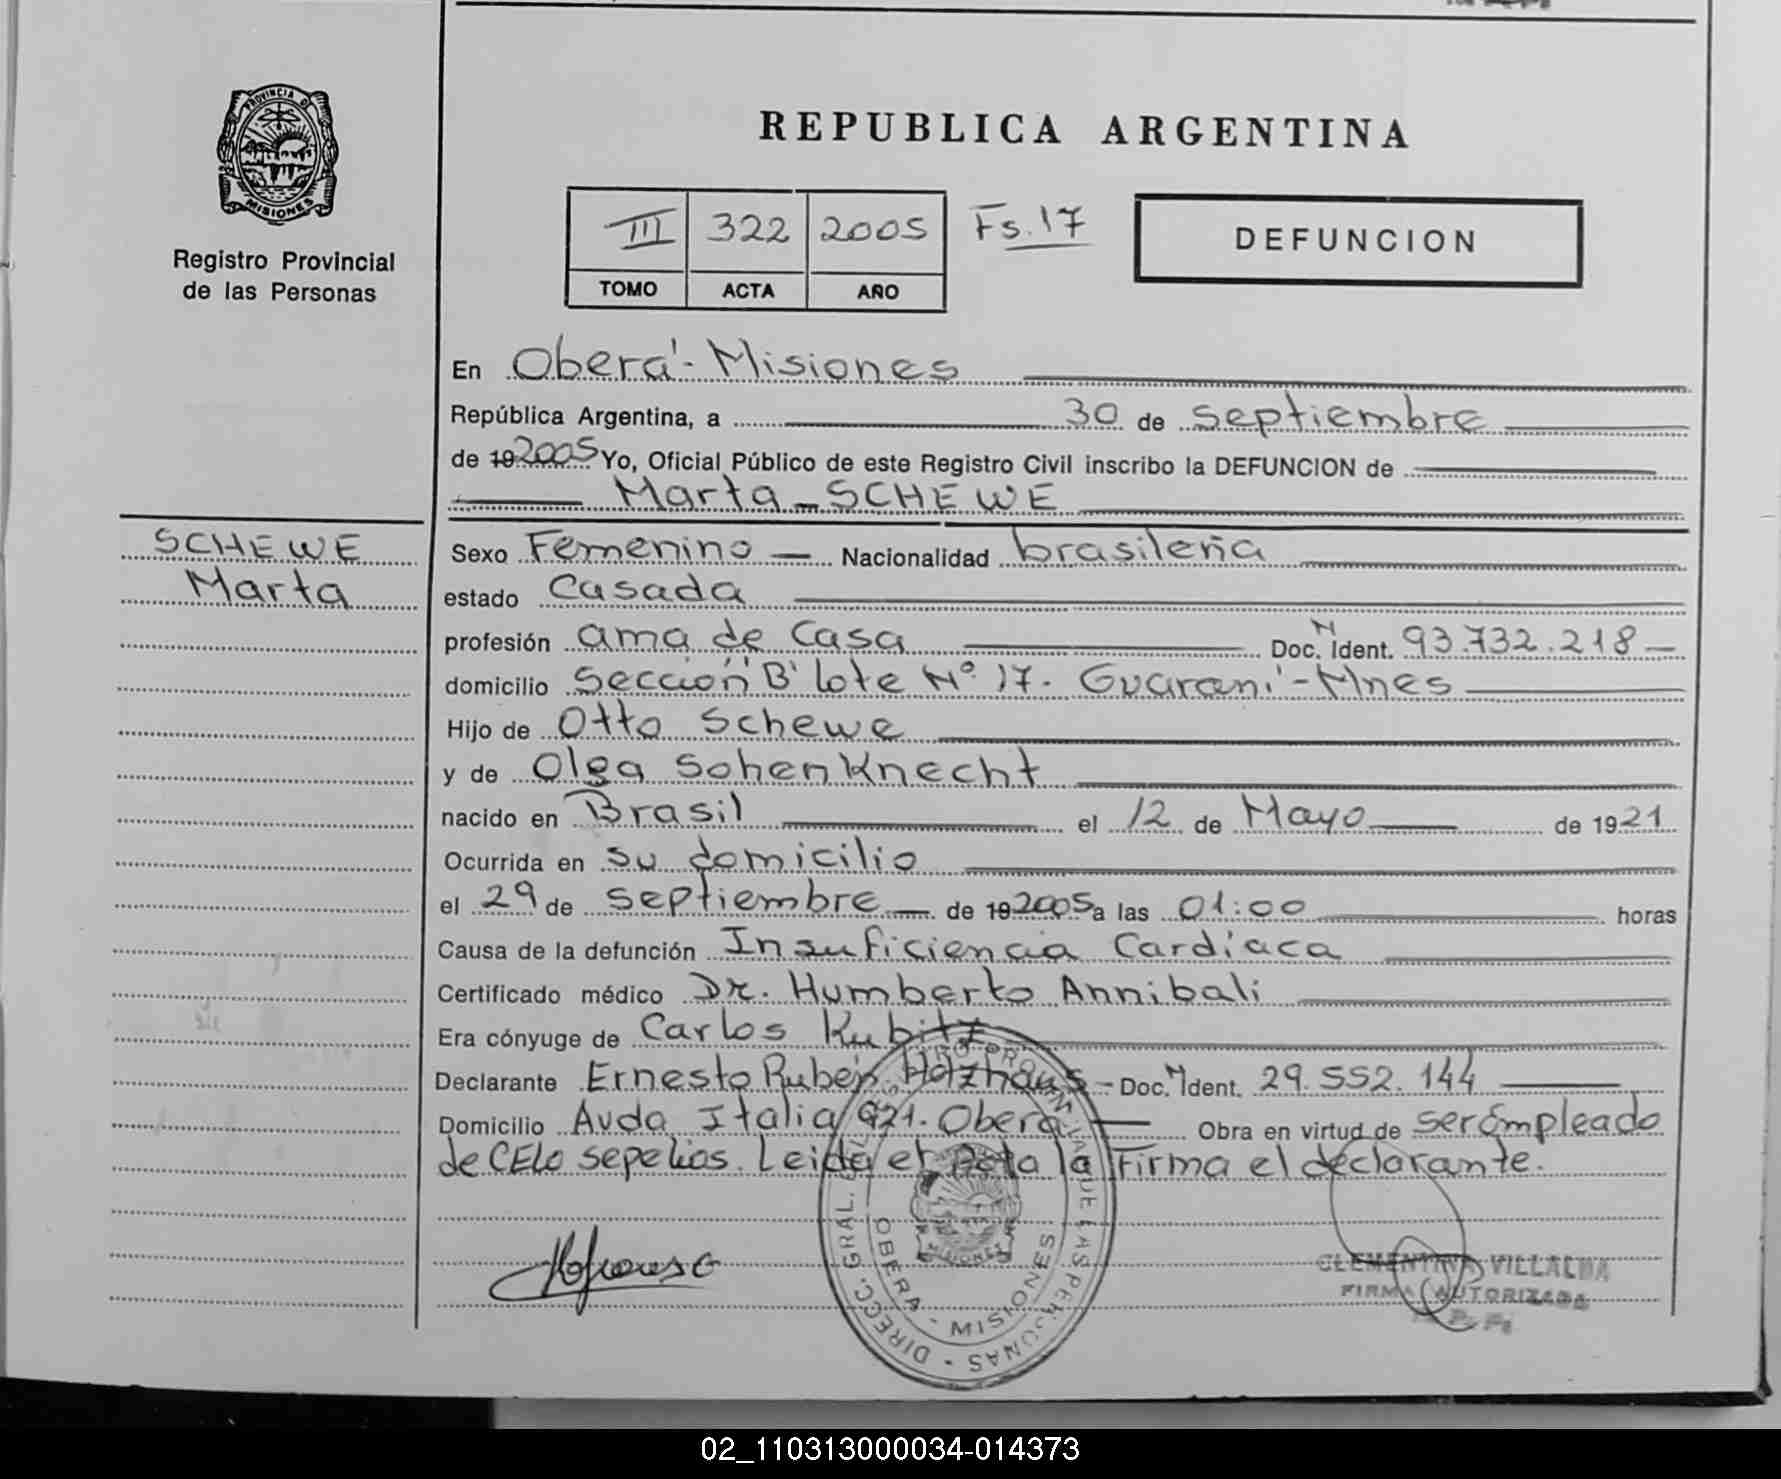 PROVINCIA DE
MISIONES
Registro Provincial
de las Personas
REPUBLICA ARGENTINA
III 322 2005 Fs. 17
TOMO ACTA AÑO
DEFUNCION
En Oberá - Misiones
República Argentina, a 30 de septiembre
de 19 2005 Yo, Oficial Público de este Registro Civil inscribo la DEFUNCION de
Marta SCHEWE
SCHEWE
Marta
Sexo Femenino Nacionalidad brasileña
estado Casada
profesión ama de Casa Doc. N Ident. 93.732.218
domicilio Sección "B" lote Nº 17. Guaraní - Mnes
Hijo de Otto Schewe
y de Olga Sohenknecht
nacido en Brasil el 12 de Mayo de 1921
Ocurrida en su domicilio
el 29 de septiembre de 19 2005 a las 01:00 horas
Causa de la defunción Insuficiencia Cardíaca
Certificado médico Dr. Humberto Annibali
Era cónyuge de Carlos Kubitz
Declarante Ernesto Rubén Holzhaus - Doc. N Ident. 29.552.144
Domicilio Avda Italia 921. Oberá Obra en virtud de ser empleado
de CELO sepelios. Leida el Acta la Firma el declarante.
DIRECC. GRAL. DEL REGISTRO PROVINCIAL DE LAS PERSONAS
OBERA - MISIONES
MISIONES
CLEMENTINA VILLALBA
FIRMA AUTORIZADA
02_110313000034-014373